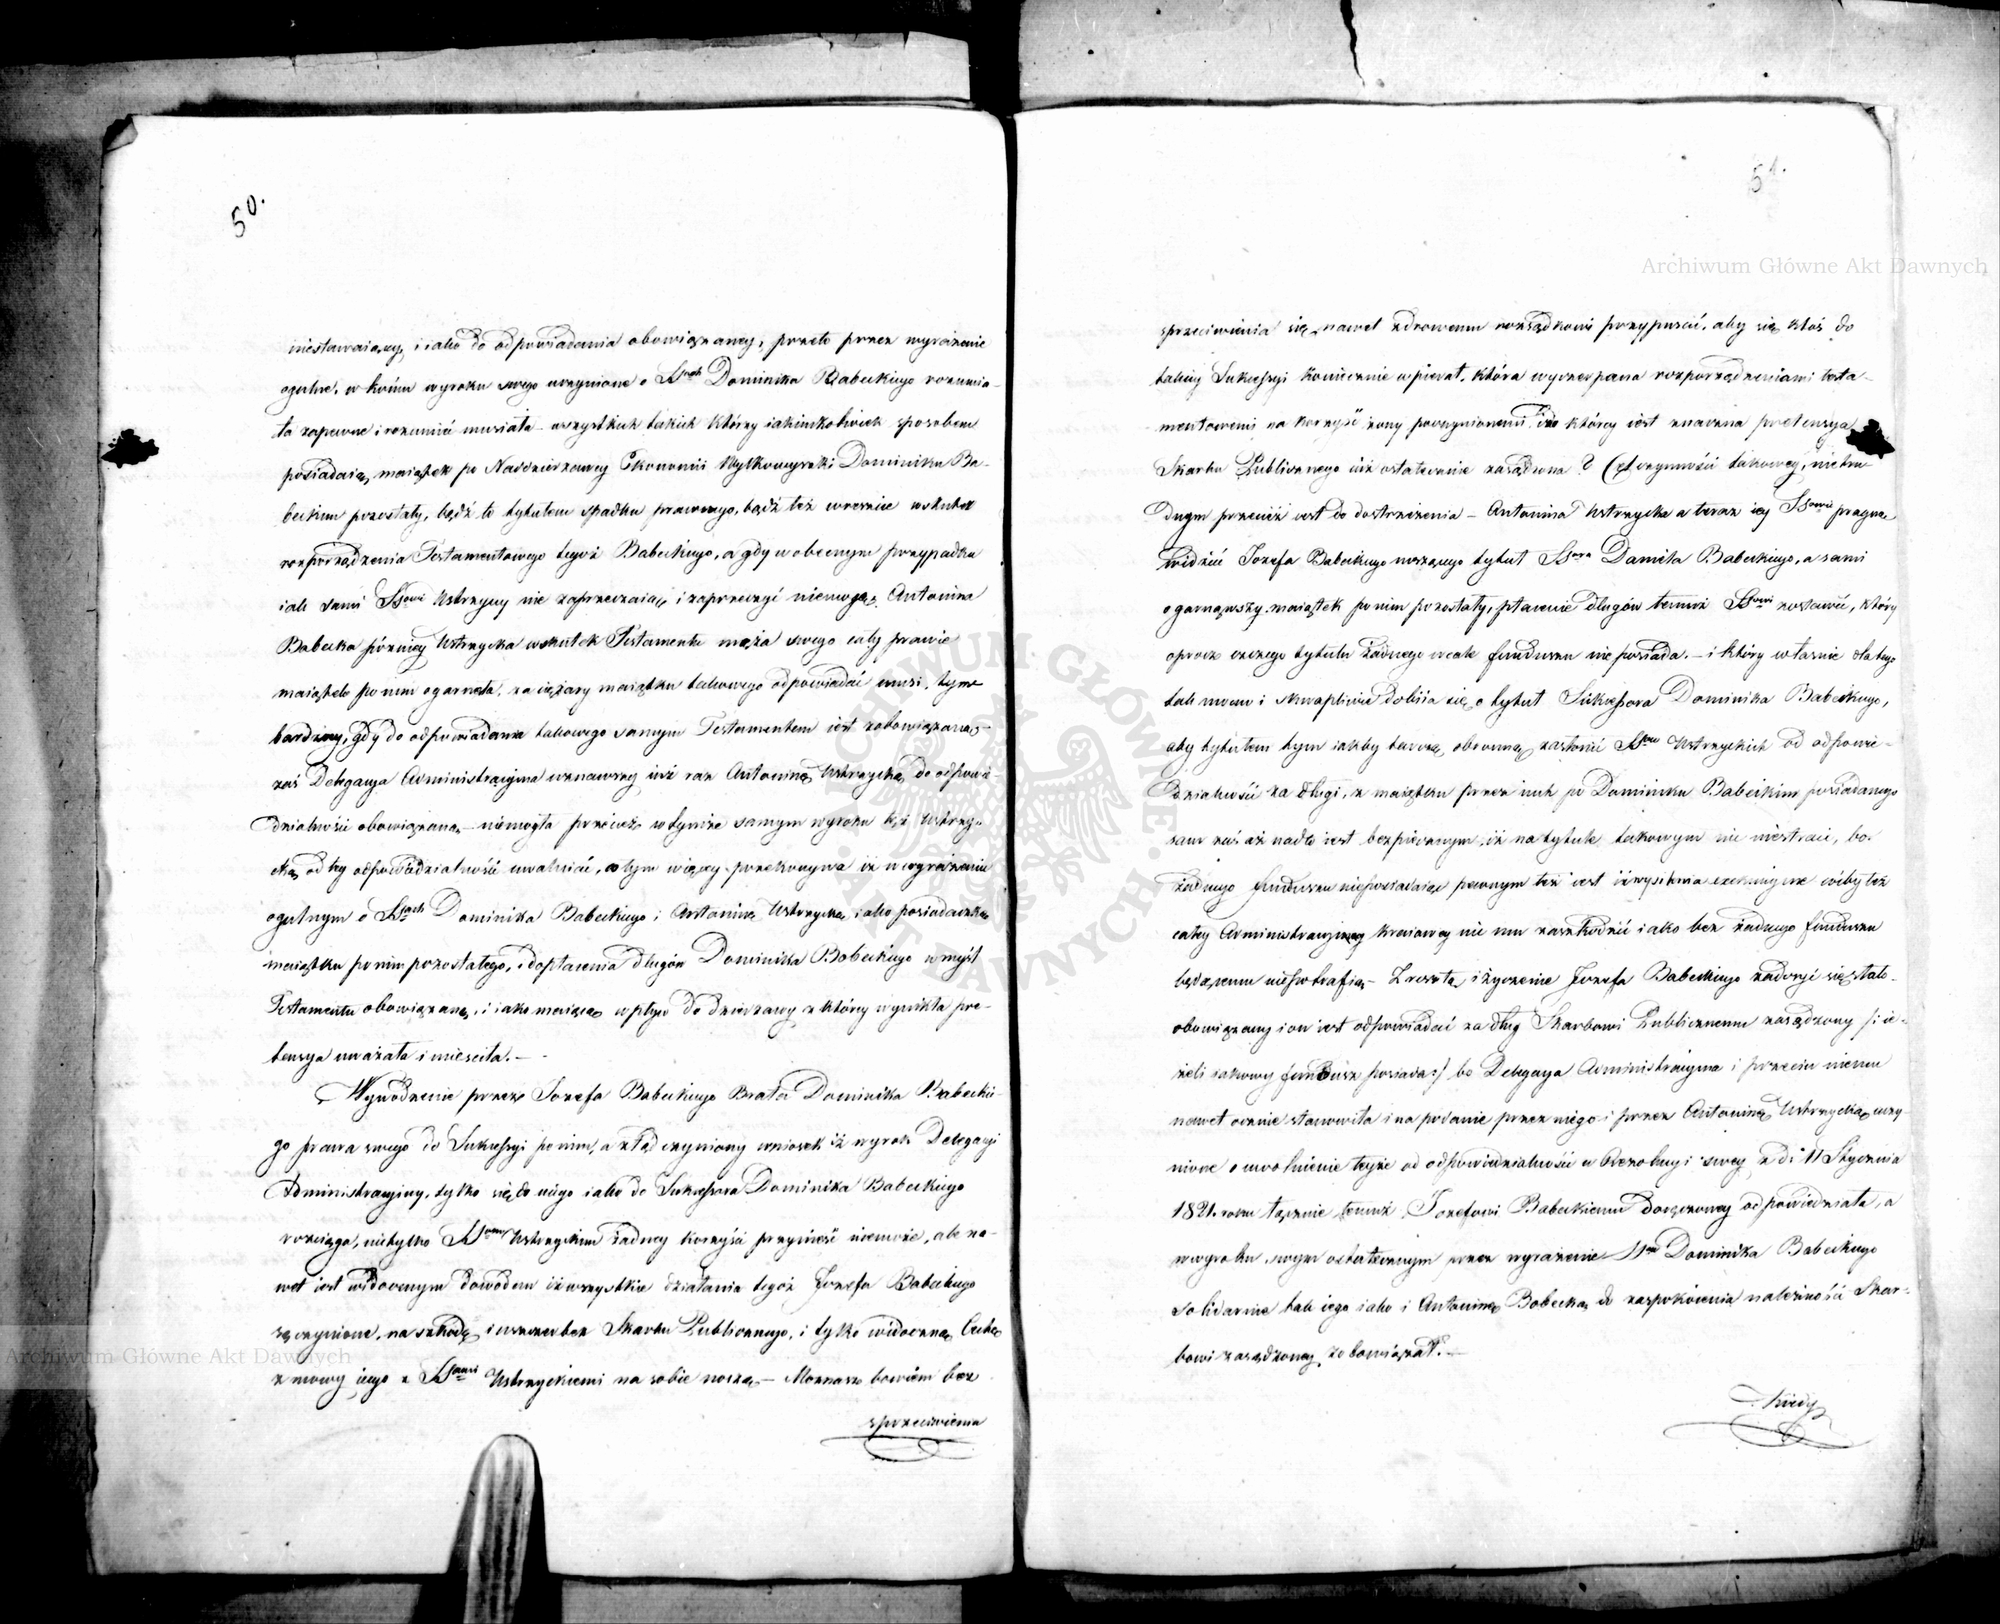 50.
niestawaiącey, i iako do odpowiadania obowiązaney, przeto przez wyrażenie
ogulne, w końcu wyroku swego uczynione o SSrach Dominika Babeckiego rozumia-
ła zapewne i rozumieć musiała wszystkich takich którzy iakimkolwiek sposobem
posiadaią maiątek po Naddzierżawcy Ekonomii Wyłkowyszki Dominiku Ba-
beckim pozostały, bądź to tytułem spadku prawnego, bądź też wreszcie wskutek
rozporządzenia Testamentowego tegoż Babeckiego, a gdy w obecnym przypadku
iak sami SSowie Ustrzyccy nie zaprzeczaią, i zaprzeczyć niemogą, Antonina
Babecka później Ustrzycka wskutek Testamentu męża swego cały prawie
maiątek po nim ogarnęła, za ciężary maiątku takowego odpowiadać musi, tym
bardziey, gdy do odpowiadania takowego samym Testamentem iest zobowiązaną,
zaś Delegacya Administracyjna uznawszy iuż raz Antoninę Ustrzycką do odpowie-
dzialności obowiązaną, niemogła przecież w tymże samym wyroku też Ustrzy-
cką od tey odpowiedzialności uwalniać, co tym więcey przekonywa iż w wyrażeniu
ogulnym o SSrach Dominika Babeckiego i Antoninę Ustrzycką iako posiadaczkę
maiątku po nim pozostałego, i do płacenia długów Dominika Babeckiego w myśl
Testamentu obowiązaną, i iako maiącą wpływ do dzierżawy z którey wynikła pre-
tensya uważała i mieściła. —
Wywodzenie przez Jozefa Babeckiego Brata Dominika Babeckie-
go prawa swego do Sukcessyi po nim, a ztąd czyniony wniosek iż wyrok Delegacyi
Administracyiney, tylko się do niego iako do Sukcessora Dominika Babeckiego
rozciąga, nietylko SSom Ustrzyckim żadney korzyści przynieść niemoże, ale na-
wet iest widocznym dowodem iż wszystkie działania tegoż Jozefa Babeckiego
są czynione, na szkodę i uszczerbek Skarbu Publicznego, i tylko widoczną Cechę
zmowy iego z SSami Ustrzyckiemi na sobie noszą — Możnasz bowiem bez
sprzeciwienia
51.
sprzeciwienia się nawet zdrowemu rozsądkowi przypuścić, aby się ktoś do
takiey Sukcessyi koniecznie wpierał, która wyczerpana rozporządzeniami testa-
mentowemi na korzyść żony poczynionemi, i do którey iest znaczna pretensya
Skarbu Publicznego iuż ostatecznie zasądzona? Cel czynności takowey, nietru-
dnym przecież iest do dostrzeżenia — Antonina Ustrzycka a teraz iey SSowie pragną
widzieć Jozefa Babeckiego noszącego tytuł SSora Daniela Babeckiego, a sami
ogarnąwszy maiątek po nim pozostały, płacenie długów temuż SSowi zostawić, który
oprócz czczego tytułu żadnego wcale funduszu nie posiada. — i który własnie dlatego
tak mocno i skwapliwie dobiia się o tytuł Sukcessora Dominika Babeckiego,
aby tytułem tym iakby tarczą obronną zasłonić SSów Ustrzyckich od odpowie-
dzialności za długi, z maiątku przez nich po Dominiku Babeckim posiadanego
sam zaś aż nadto iest bezpiecznym, iż na tytule takowym nic niestraci, bo
żadnego funduszu nieposiadaiąc pewnym też iest iż wysilenia exekucyine choćby też
całey Administracyiney kraiowey nic mu zaszkodzić iako bez żadnego funduszu
będącemu niepotrafią — Zresztą, i życzenie Jozefa Babeckiego zadosyć się stało
obowiązany i on iest odpowiadać za dług Skarbowi Publicznemu zasądzony /: ie-
żeli iakowy fundusz posiada :/ bo Delegacya Administracyjna i przeciw niemu
nawet ocznie stanowiła i na podanie przez niego i przez Antoninę Ustrzycką uczy-
nione o uwolnienie teyże od odpowiedzialności w Rezolucyi swey z d: 11 Stycznia
1821. roku łącznie temuż Jozefowi Babeckiemu doręczoney odpowiedziała, a
w wyroku swym ostatecznym przez wyrażenie SSów Dominika Babeckiego
solidarnie tak iego iako i Antoninę Babecką do zaspokoienia należności Skar-
bowi zasądzoney zobowiązał. —
Kiedy
Archiwum Główne Akt Dawnych
Archiwum Główne Akt Dawnych
ARCHIWUM GŁÓWNE AKT DAWNYCH